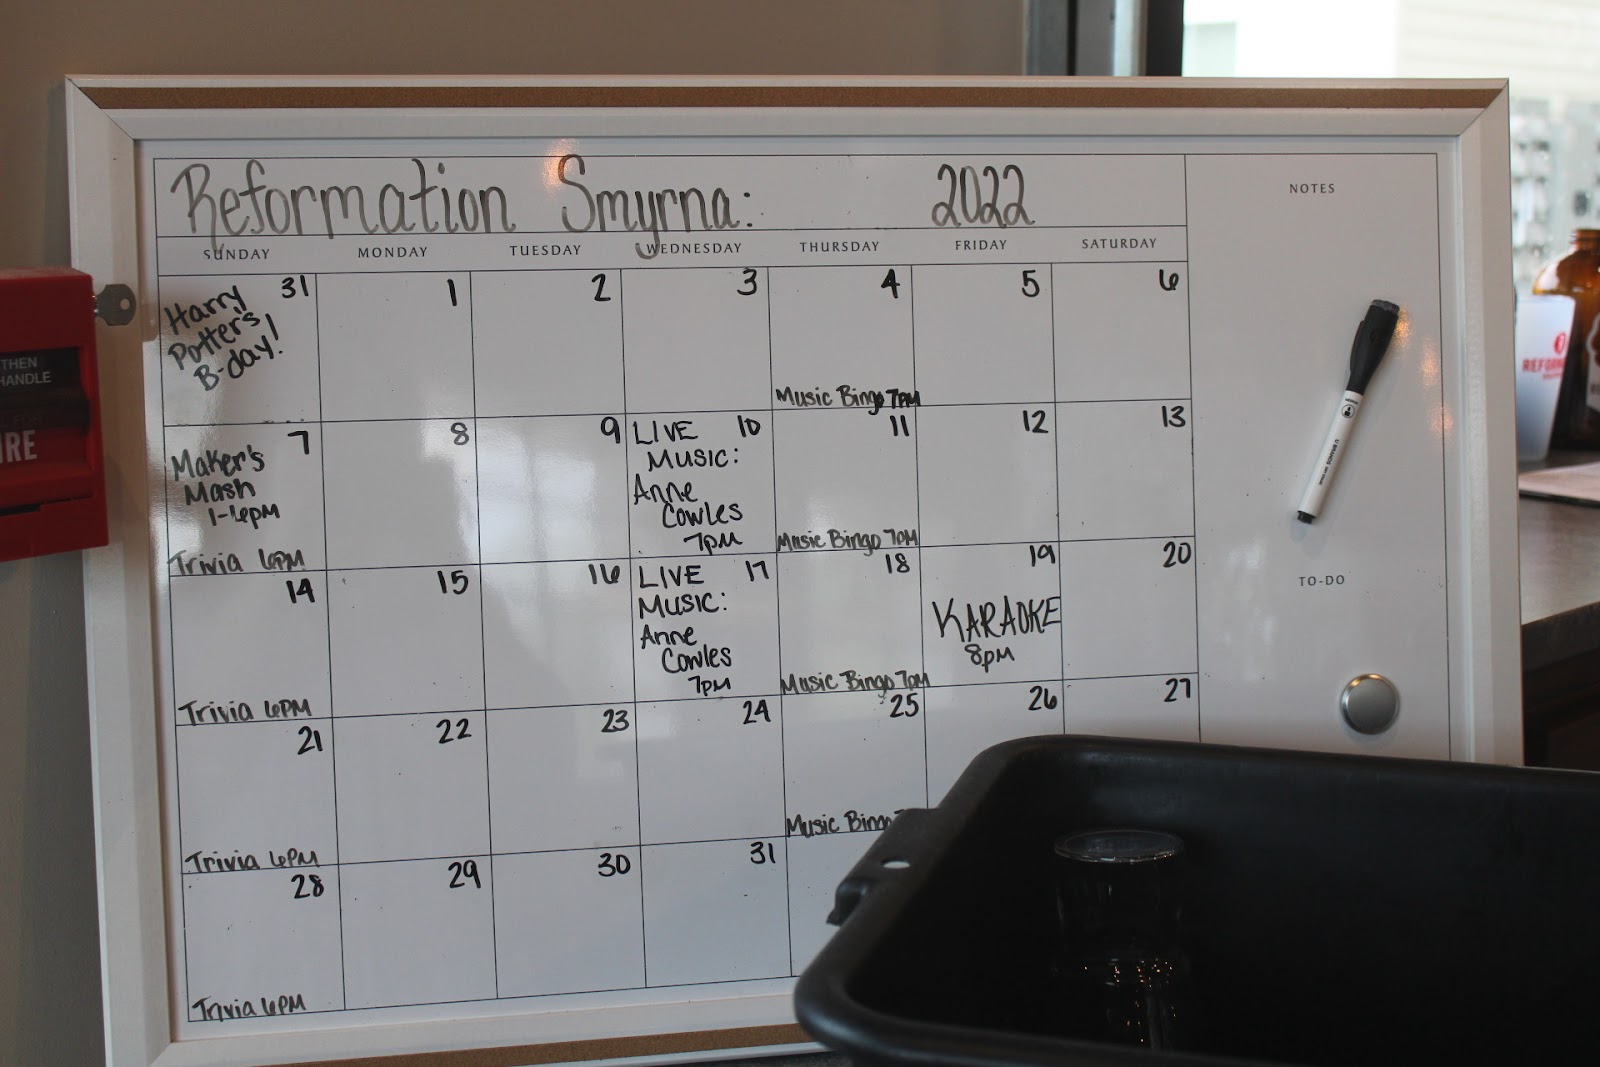 Reformation Smyrna: 2022
NOTES
SUNDAY MONDAY TUESDAY WEDNESDAY THURSDAY FRIDAY SATURDAY
31 1 2 3 4 5 6
Harry
Potter's
B-day!
Music Bingo 7PM
7 8 9 10 11 12 13
Maker's
Mash
1-6PM
Trivia 6PM
LIVE
Music:
Anne
Cowles
7PM
Music Bingo 7PM
14 15 16 17 18 19 20
Trivia 6PM
LIVE
Music:
Anne
Cowles
7PM
Music Bingo 7PM
KARAOKE
8PM
TO-DO
21 22 23 24 25 26 27
Trivia 6PM
Music Bingo
28 29 30 31
Trivia 6PM
THEN
HANDLE